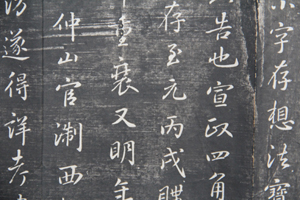 字存想法寶
告也宣政四角
存至元丙戌
衰又明年
仲山官淛西
遂得詳考